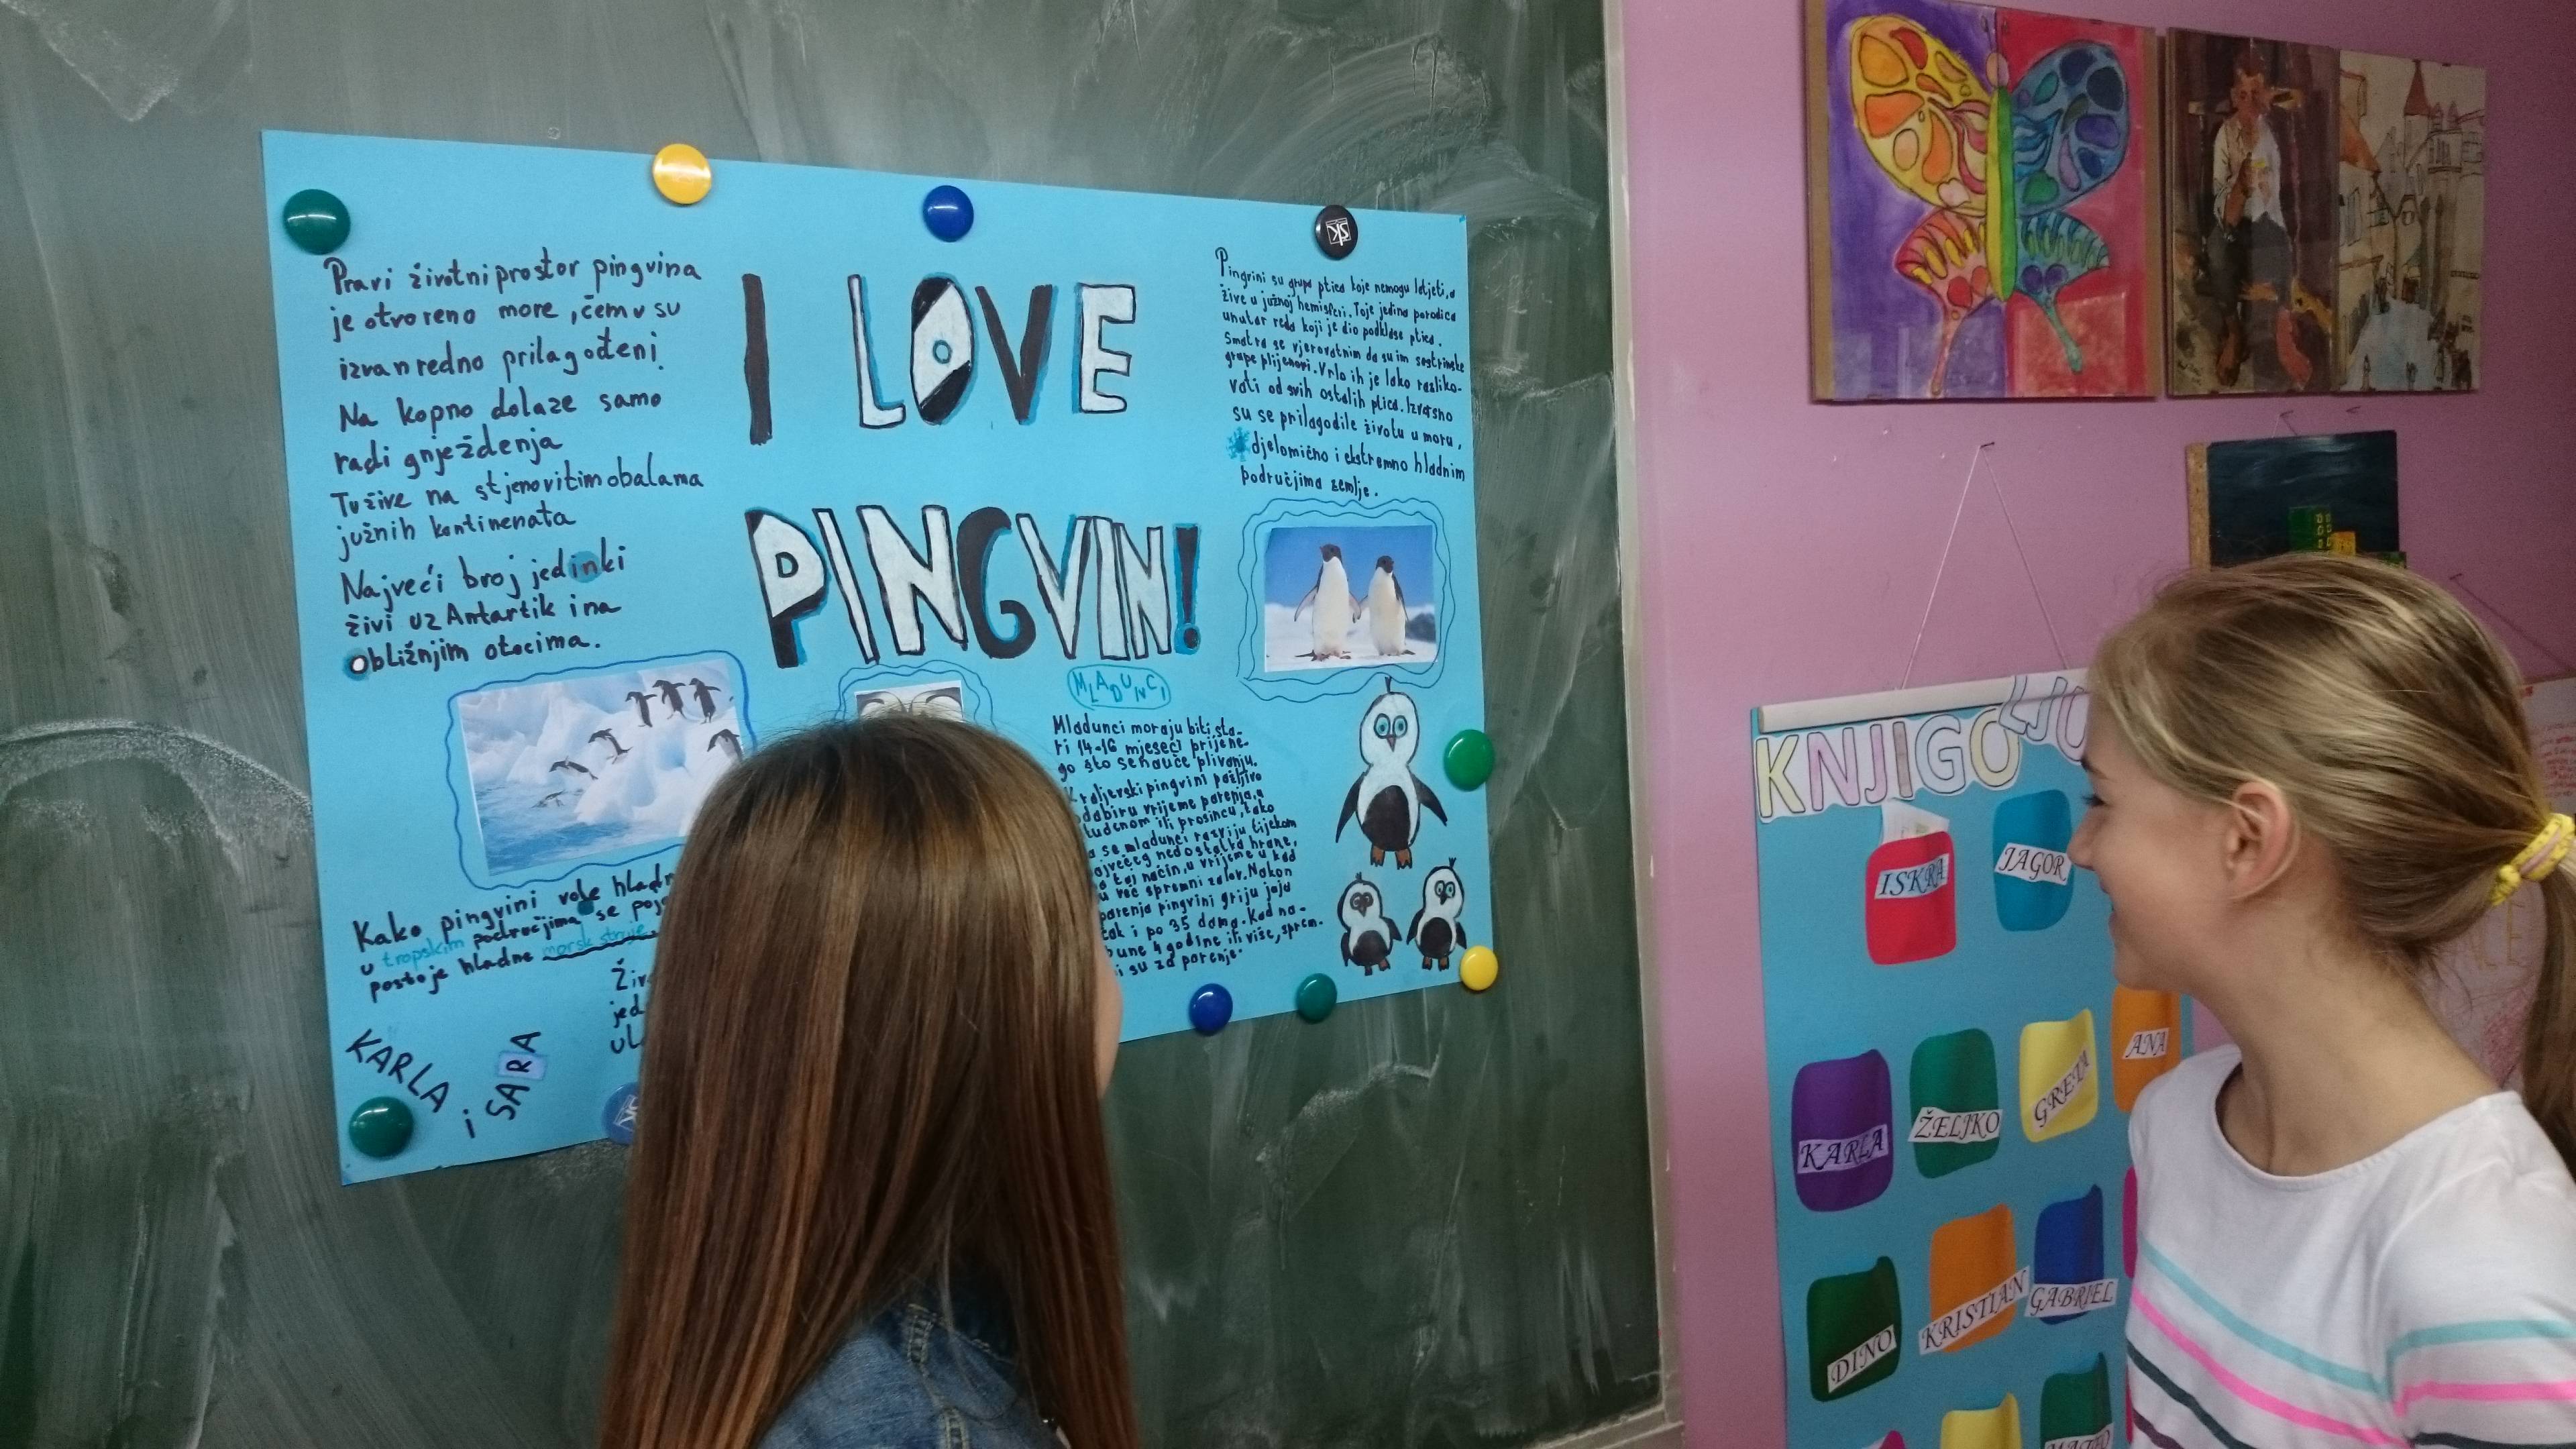 Pravi životni prostor pingvina
je otvoreno more, čemu su
izvanredno prilagođeni.
Na kopno dolaze samo
radi gnježdenja
Tu žive na stjenovitim obalama
južnih kontinenata
Najveći broj jedinki
živi uz Antartik i na
obližnjim otocima.
I LOVE
PINGVIN!
Pingvini su grupa ptica koje nemogu letjeti, a
žive u južnoj hemisferi. To je jedina porodica
unutar reda koji je dio podklase ptica.
Smatra se vjerovatnim da su im sestrinske
grupe plijenovi. Vrlo ih je lako razliko-
vati od svih ostalih ptica. Izvrsno
su se prilagodile životu u moru,
djelomično i ekstremno hladnim
područjima zemlje.
MLADUNCI
Mladunci moraju biti sta-
ri 14-16 mjeseci prije ne-
go što se nauče plivanju.
Kraljevski pingvini pažljivo
odabiru vrijeme parenja, a
studenom ili prosincu, tako
a se mladunci razviju tijekom
ajvećeg nedostatka hrane,
a taj način, u vrijeme u kad
u već spremni za lov. Nakon
parenja pingvini griju jaja
čak i po 35 dana. Kad na-
pune 4 godine ili više, sprem-
ni su za parenje.
Kako pingvini vole hladn
u tropskim područjima se poja
postoje hladne morsk struje
Živ
jed
ul
KARLA
i
SARA
SK
KNJIGOLJU
ISKRA
JAGOR
KARLA
ŽELJKO
GRETA
ANA
DINO
KRISTIAN
GABRIEL
MATEO